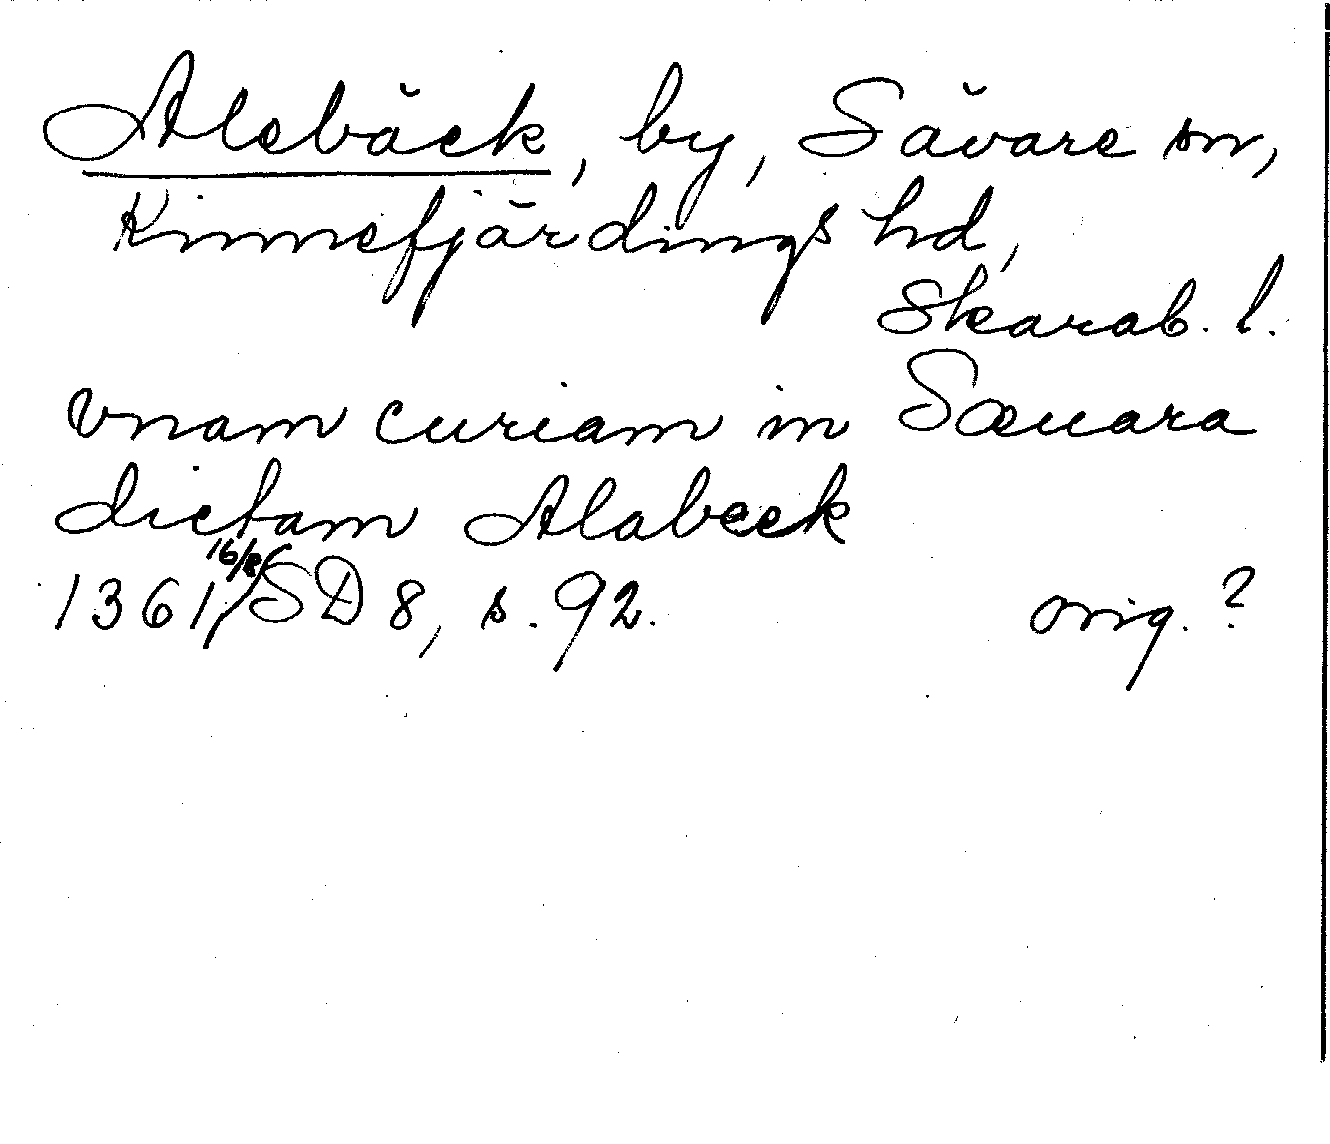 Alebäck, by, Sävare sn,
Kinnefjärdings hd,
Skarab. l.
vnam curiam in Sæuara
dictam Alabeek
1361 16/2 SD 8, s. 92. orig. ?